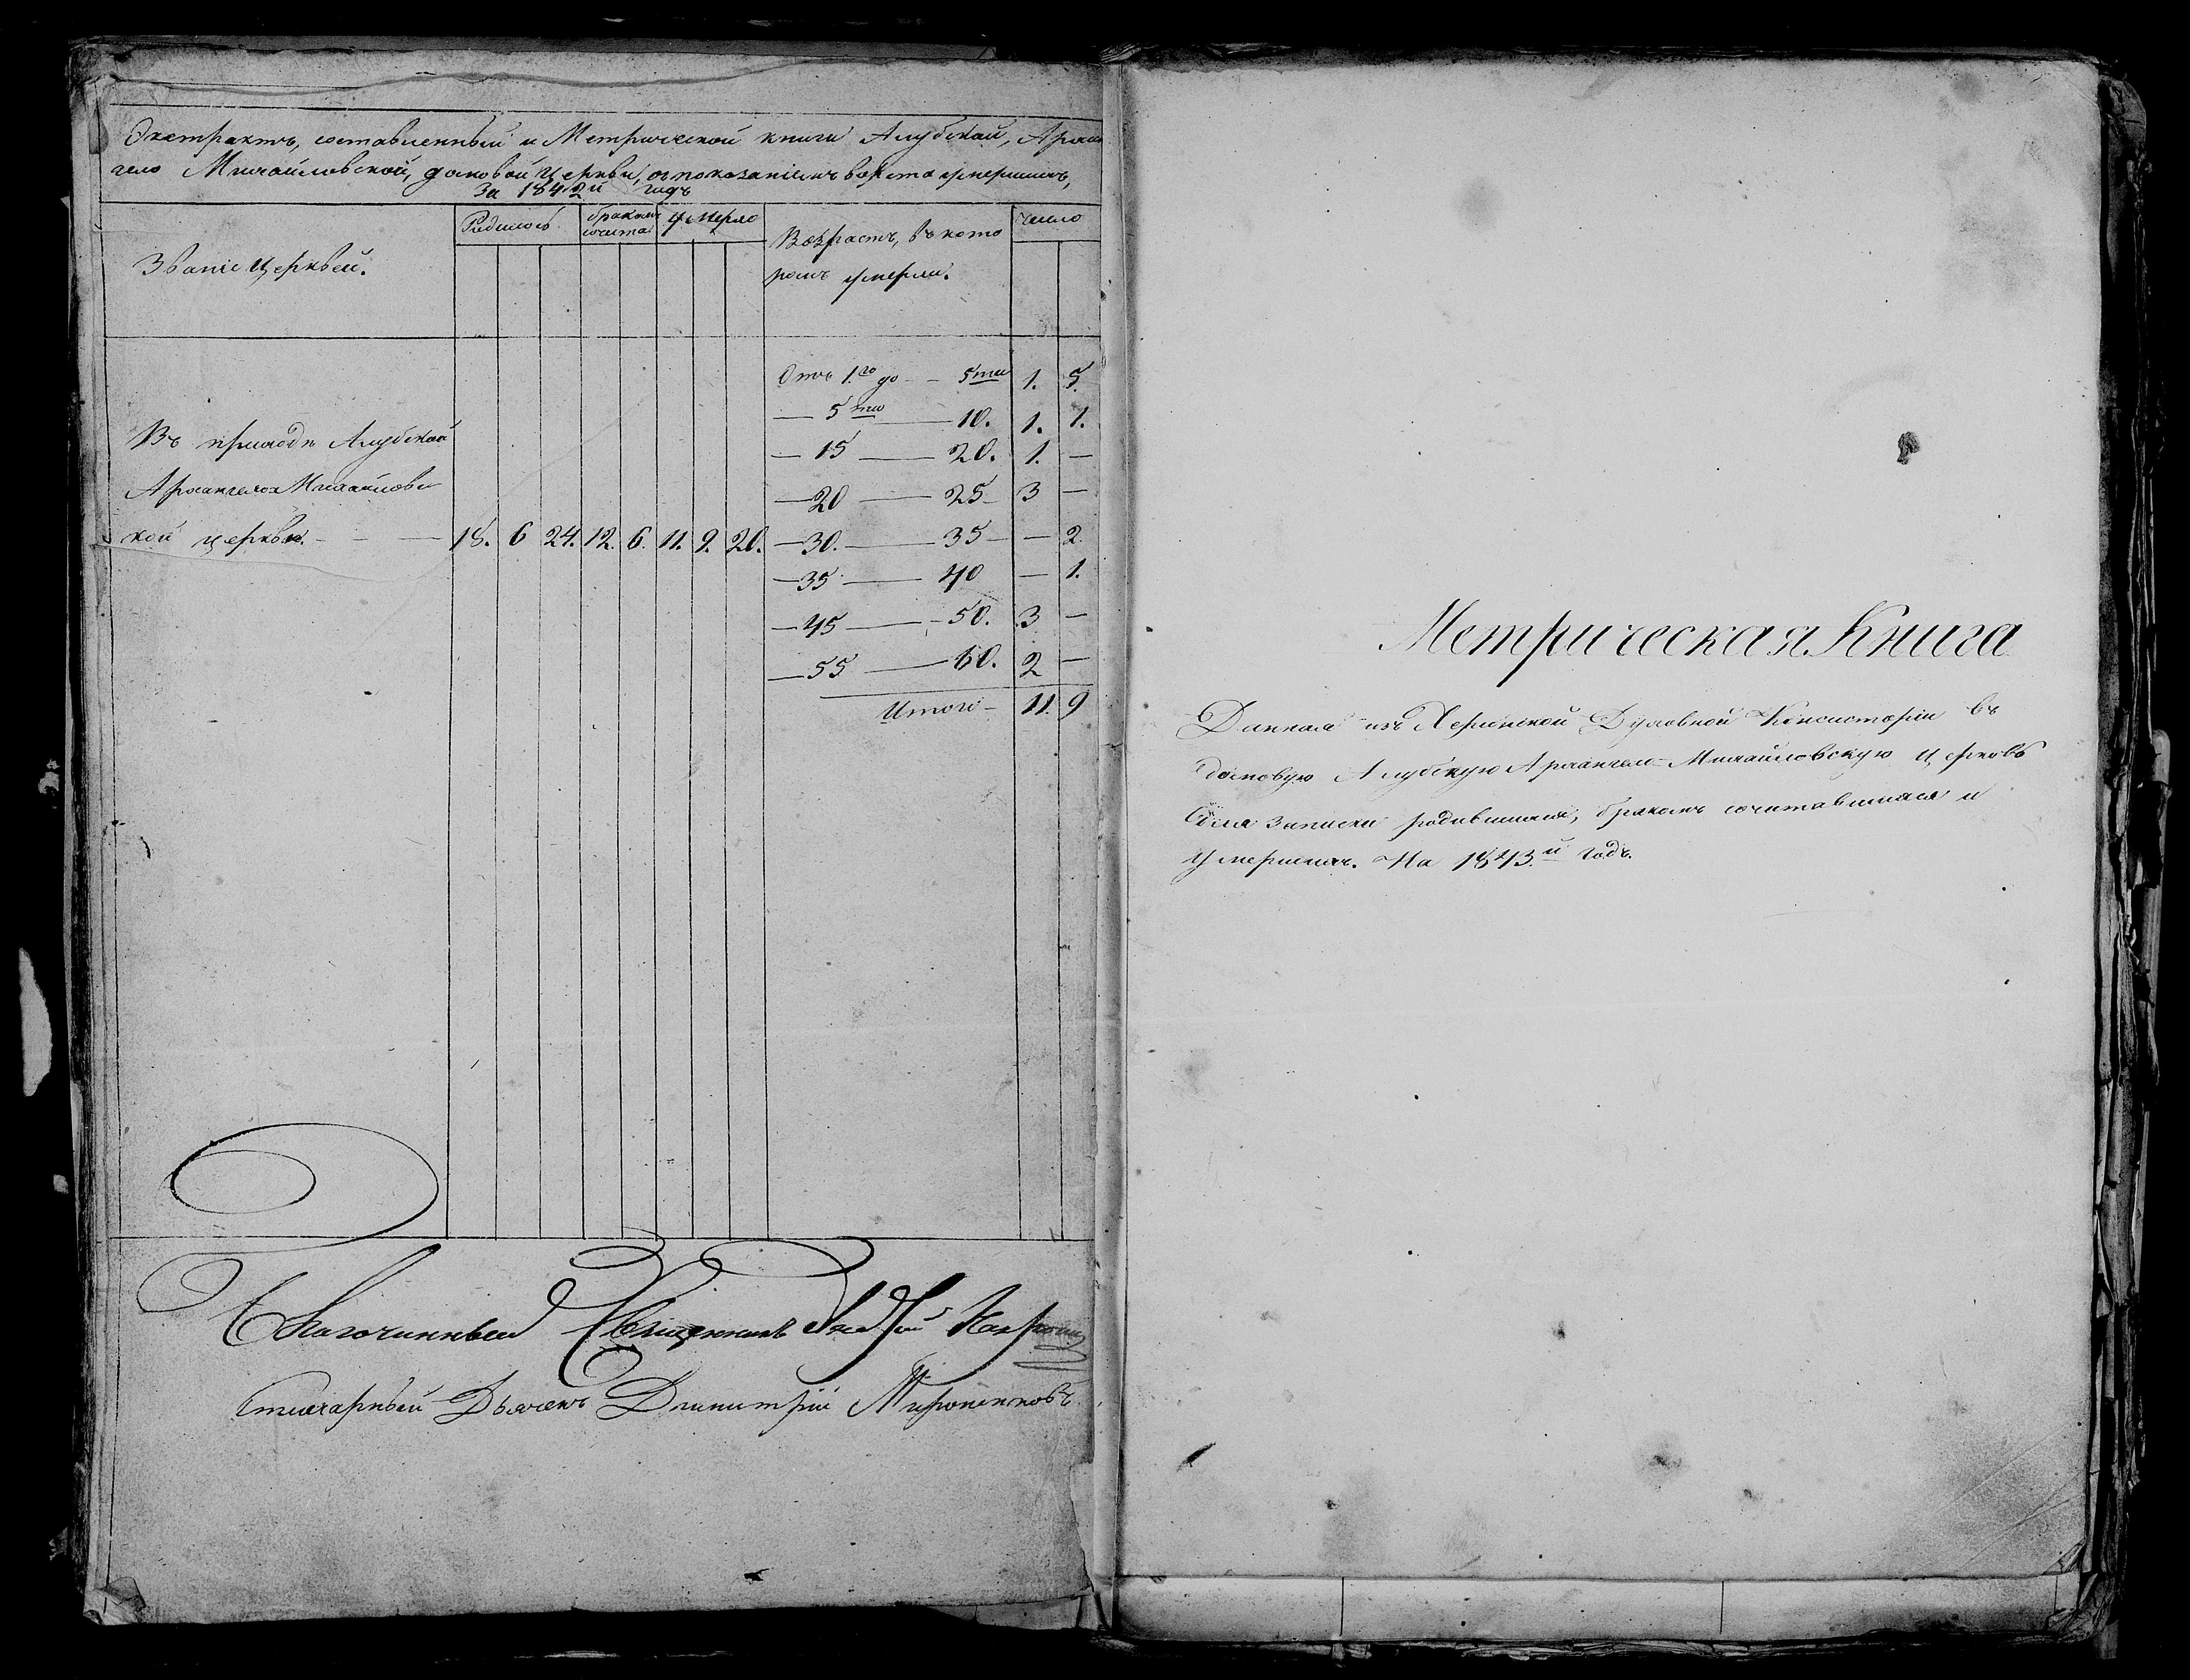 Экстрактъ, составленный и Метрической книги Алупской, Архан
гело Михайловской, домовой Церкви, съ показаніемъ возроста умершихъ,
За 1842й годъ
Званіе Церквей.
Родилось
бракомъ сочета
Умерло
Возрастъ, въ кото
ромъ умерли.
число
Отъ 1.го до - - 5ти 1. 5.
— 5ти — 10. 1. 1.
— 15 — 20. 1. —
— 20 — 25 3 —
Въ приходѣ Алупской
Архангело Михайловс
кой церкви. - - — 18. 6 24. 12. 6. 11. 9. 20. — 30. — 35 — — 2.
— 35 — 40 — 1.
— 45 — 50. 3 —
— 55 — 60. 2 —
Итого - 11. 9
Благочинный Священникъ
Стихарный Дьячекъ Димитрій Мироненковъ.
Метрическая Книга
Данная изъ Херсонской Духовной Консисторіи въ
домовую Алупскую Архангело-Михайловскую Церковь
для записки родившихся, бракомъ сочетавшихся и
умершихъ. На 1843.й годъ.